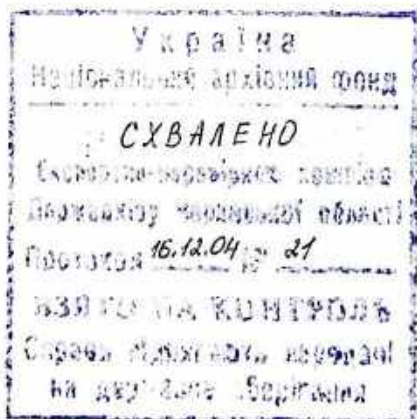 Україна
Національний архівний фонд
СХВАЛЕНО
Експертно-перевірною комісією
області
Протокол 16.12.04 № 21
ВЗЯТО НА КОНТРОЛЬ
Справи підлягають передачі
на державне зберігання